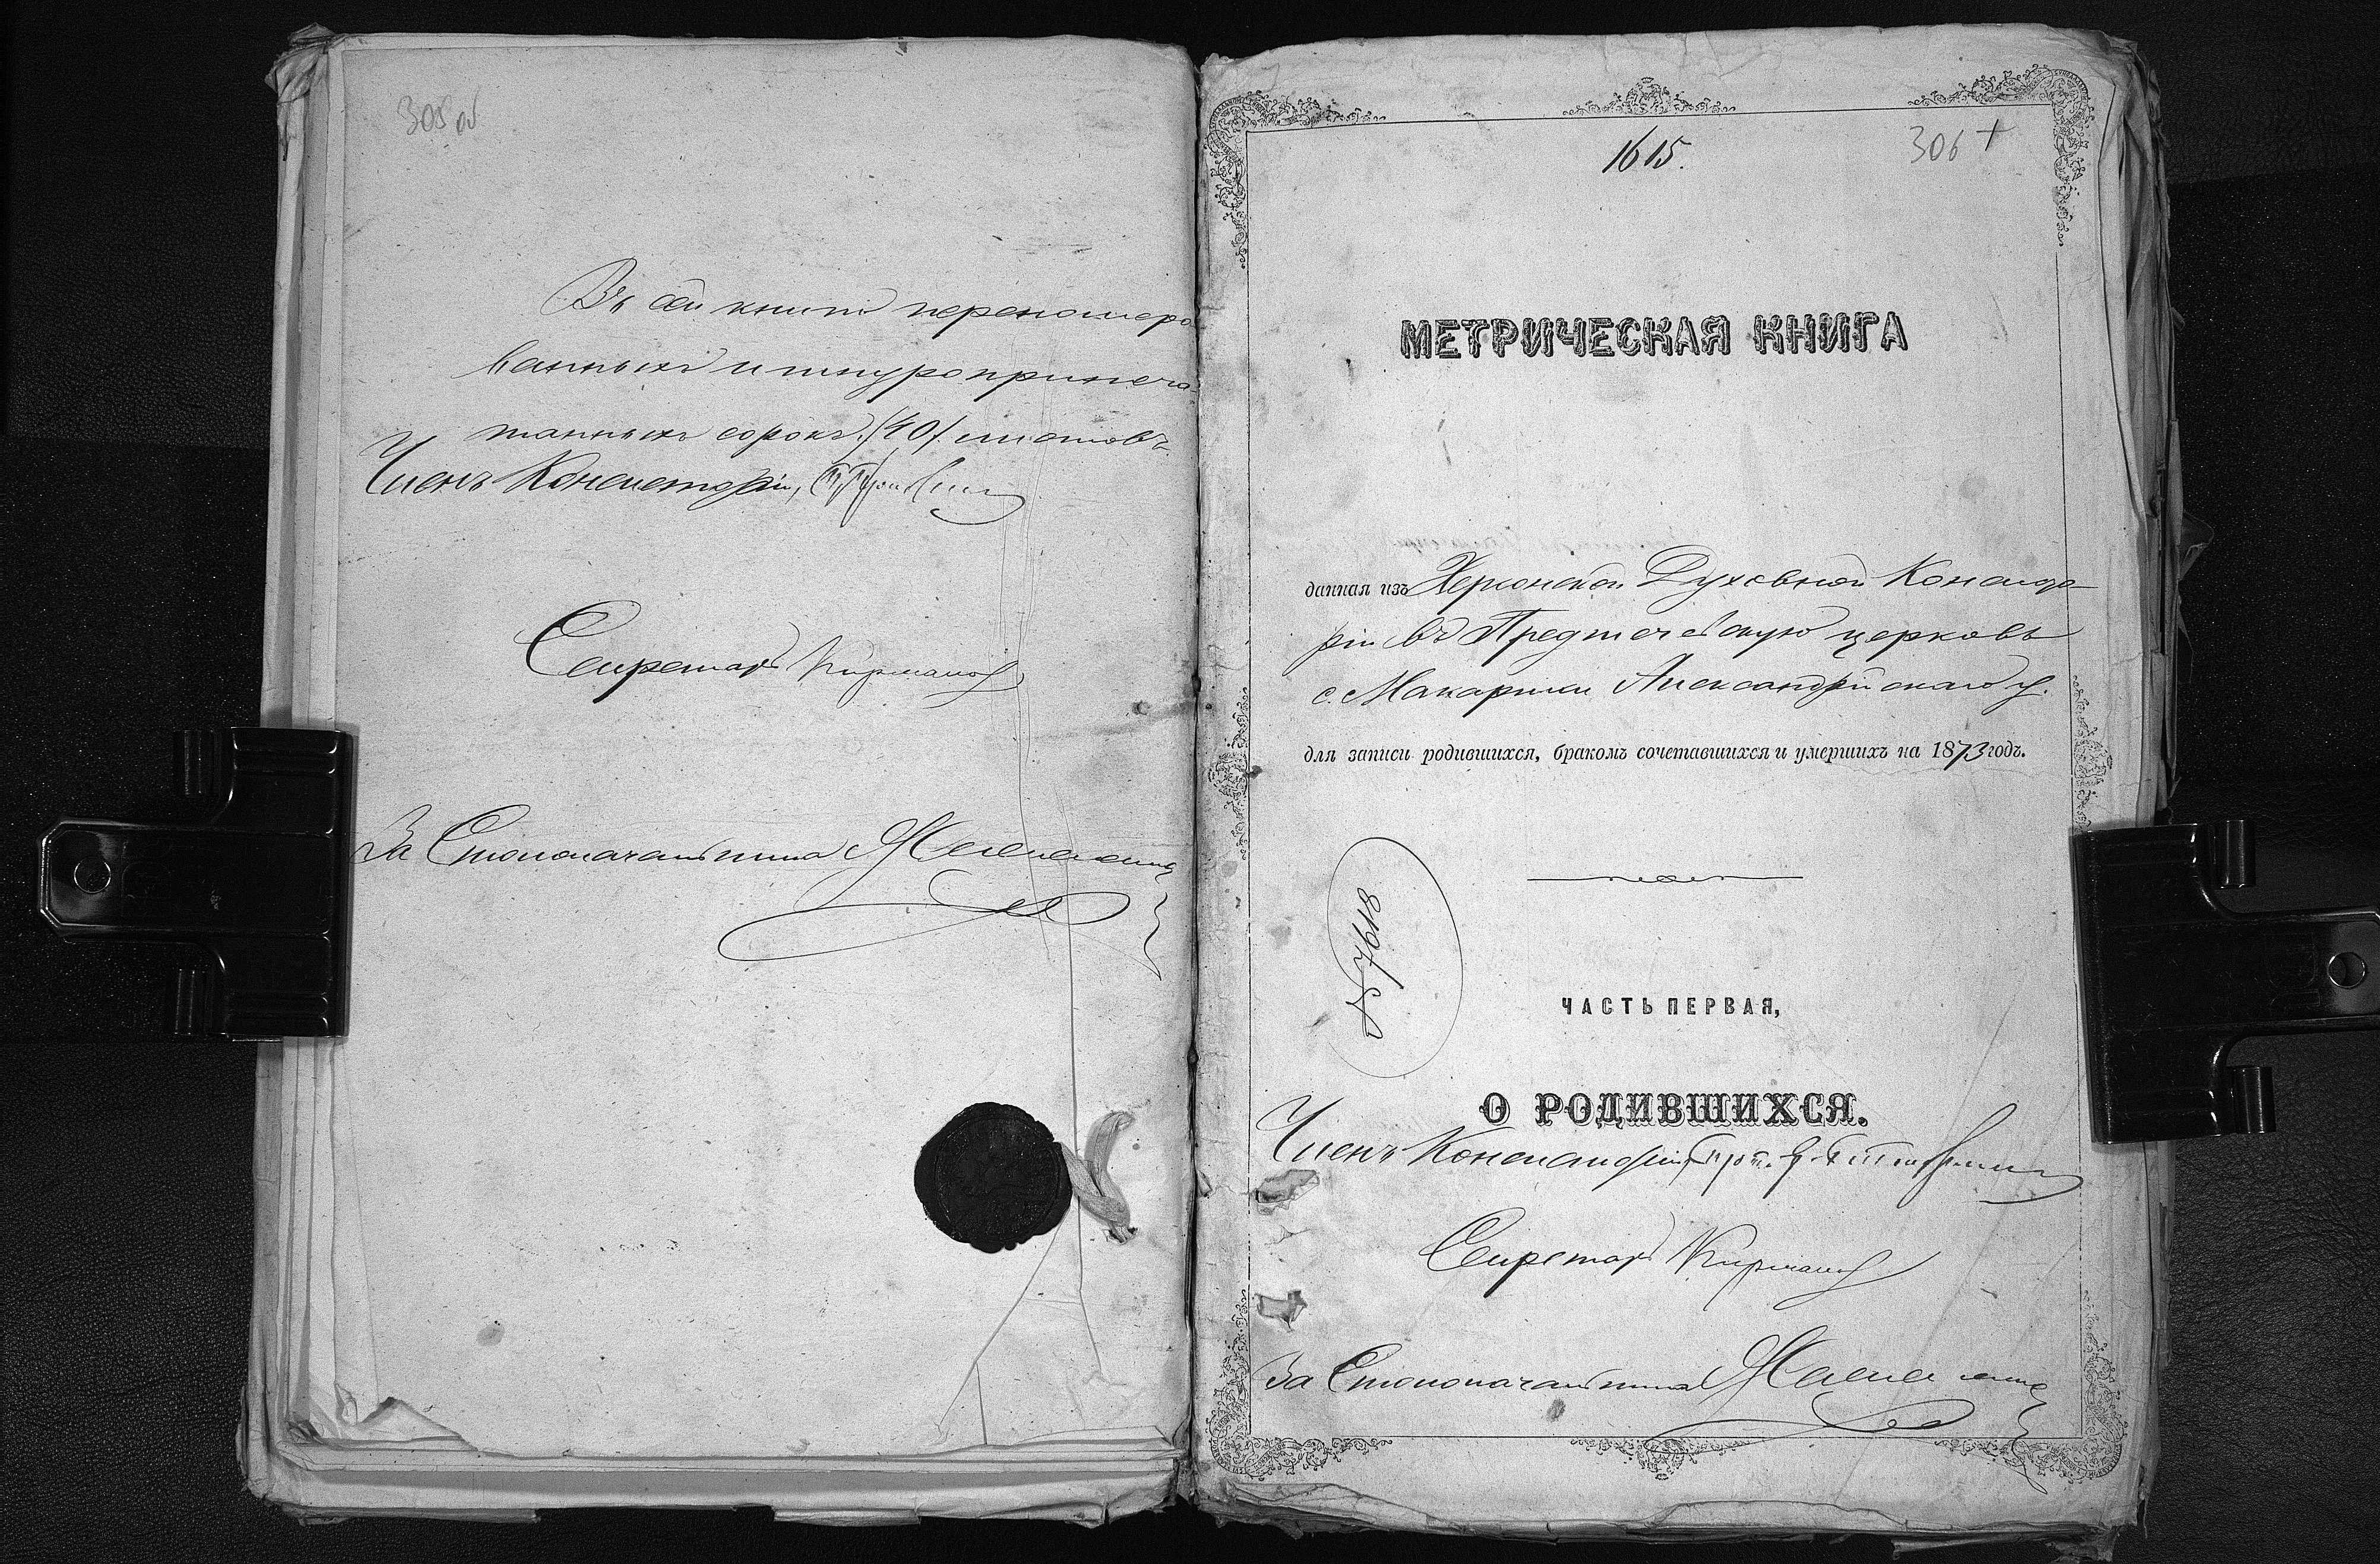 305 об
Въ сей книгѣ перенумеро
ванныхъ и шнуроприпеча-
танныхъ сорокъ /40/ листовъ.
Членъ Консисторіи,
Секретарь Кирьяковъ
За Столоначальника
1615.
306 +
МЕТРИЧЕСКАЯ КНИГА
данная изъ Херсонской Духовной Консисто-
ріи въ Предтечевскую церковь
с. Макарихи Александрійскаго у.
для записи родившихся, бракомъ сочетавшихся и умершихъ на 1873 годъ.
№ 7618
ЧАСТЬ ПЕРВАЯ,
О РОДИВШИХСЯ.
Членъ Консисторіи, Прот.
Секретарь
За Столоначальника